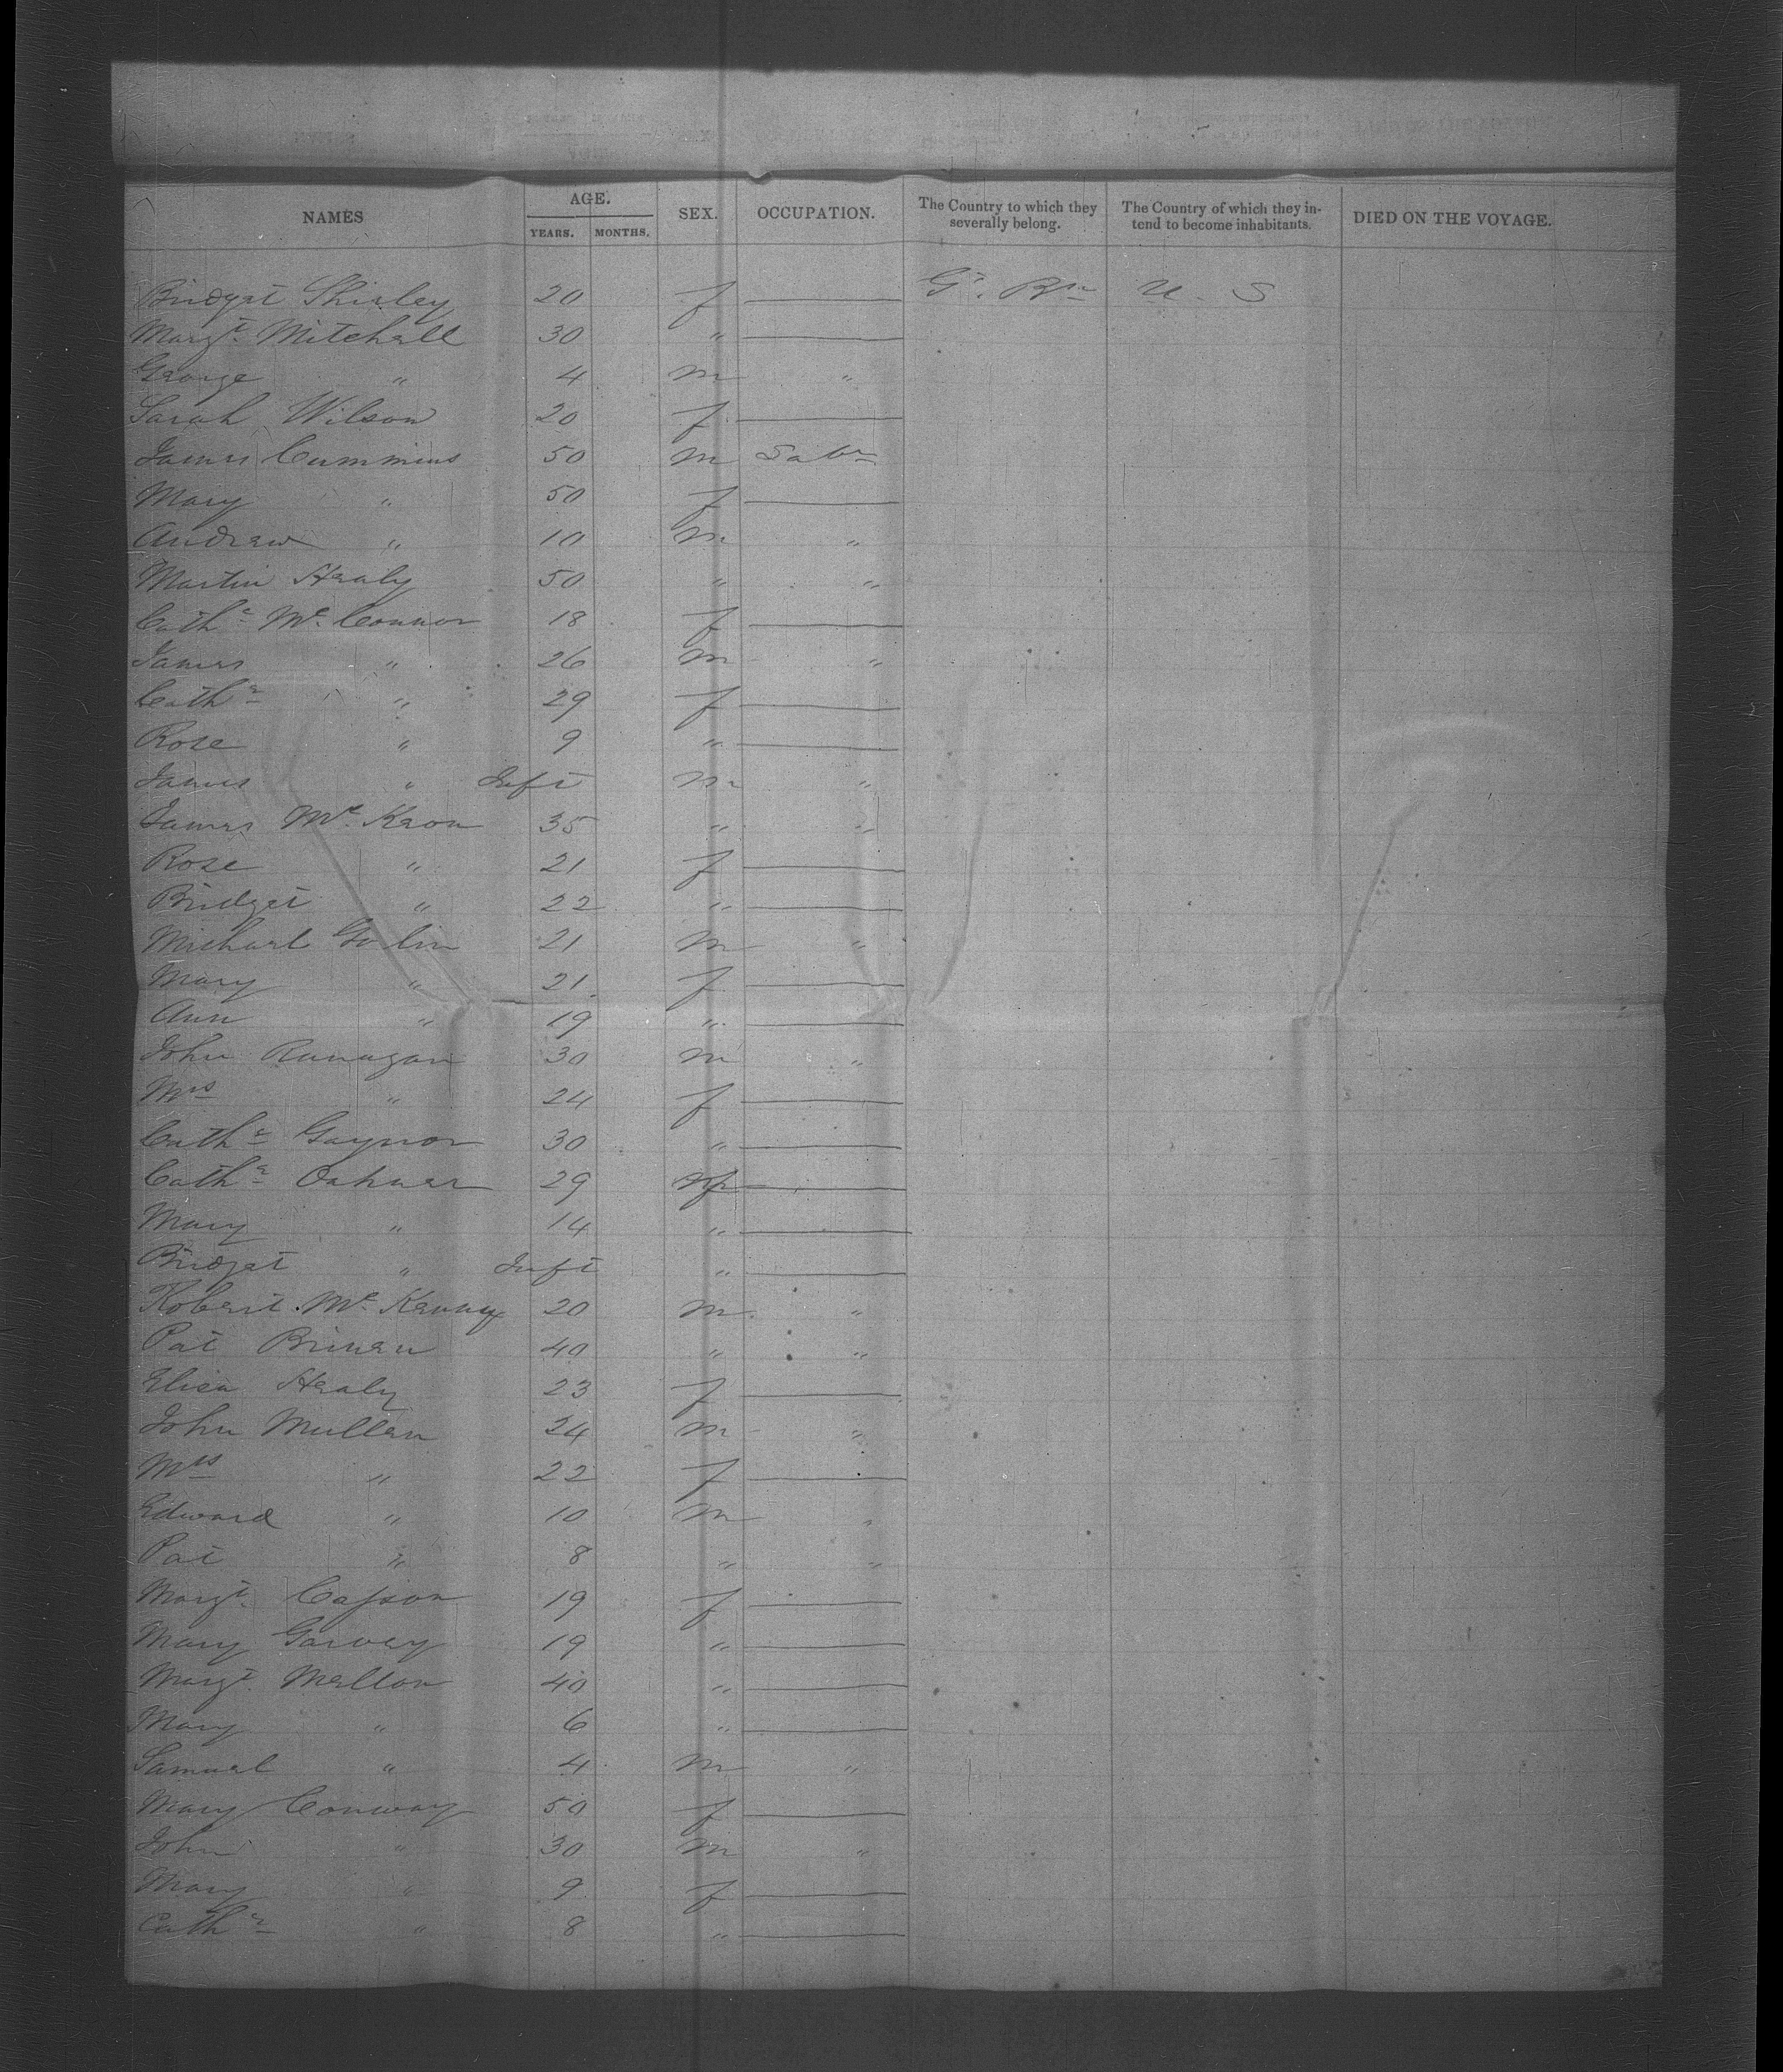 NAMES AGE. YEARS. MONTHS. SEX. OCCUPATION. The Country to which they severally belong. The Country of which they intend to become inhabitants. DIED ON THE VOYAGE.
Bridget Shirley 20 f — Gt. Brn U. S
Margt. Mitchell 30 " —
George " 4 m "
Sarah Wilson 20 f —
James Cummins 50 m Labr
Mary " 50 f —
Andrew " 10 m "
Martin Healy 50 " "
Cathe Mc Connor 18 f —
James " 26 m "
Cathe " 29 f —
Rose " 9 " —
James " Inft m "
James Mc Keon 35 " "
Rose " 21 f —
Bridget " 22 " —
Michael Golin 21 m "
Mary " 21 f —
Ann " 19 " —
John Ranagan 30 m "
Mrs " 24 f —
Cathe Gaynor 30 " —
Cathe 29 f —
Mary " 14 " —
Bridget " Inft " —
Robert Mc Kenny 20 m "
Pat Brinen 40 " "
Eliza Healy 23 f —
John Mullen 24 m "
Mrs " 22 f —
Edward " 10 m "
Pat " 8 " "
Margt. Casson 19 f —
Mary Garvey 19 " —
Margt. Mellon 40 " —
Mary " 6 " —
Samuel " 4 m "
Mary Conway 50 f —
John " 30 m "
Mary " 9 f —
Cathe " 8 " —